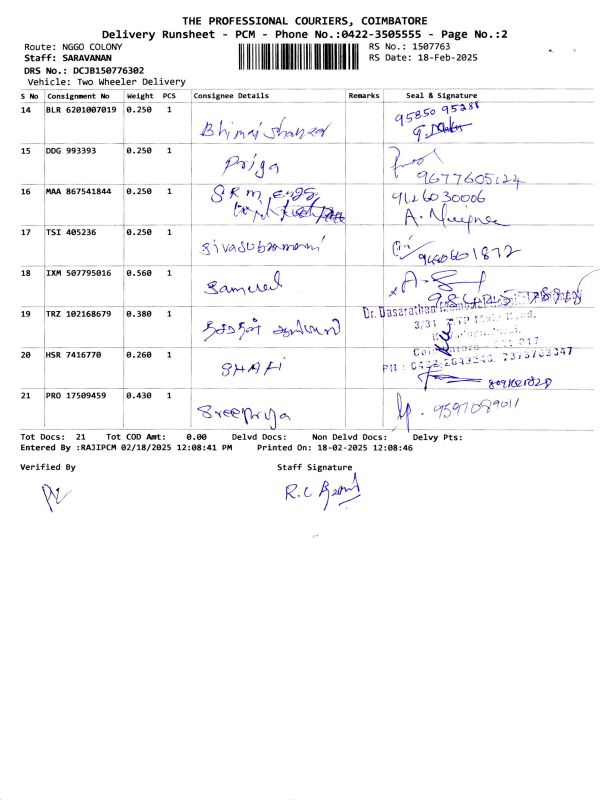 THE PROFESSIONAL COURIERS, COIMBATORE
Delivery Runsheet - PCM - Phone No.:0422-3505555 - Page No.:2
Route: NGGO COLONY RS No.: 1507763
Staff: SARAVANAN RS Date: 18-Feb-2025
DRS No.: DCJB150776302
Vehicle: Two Wheeler Delivery
S No Consignment No Weight PCS Consignee Details Remarks Seal & Signature
14 BLR 6201007019 0.250 1 95850 95288
15 DDG 993393 0.250 1 Priya
9677605124
16 MAA 867541844 0.250 1 SRM Engg 9126030006
17 TSI 405236 0.250 1 Sivasubramani
18 IXM 507795016 0.560 1 Samuel
19 TRZ 102168679 0.380 1 Dr. Dasarathan
20 HSR 7416770 0.260 1 SHAFI
21 PRO 17509459 0.430 1 Sreepriya 9597089011
Tot Docs: 21 Tot COD Amt: 0.00 Delvd Docs: Non Delvd Docs: Delvy Pts:
Entered By :RAJIPCM 02/18/2025 12:08:41 PM Printed On: 18-02-2025 12:08:46
Verified By Staff Signature